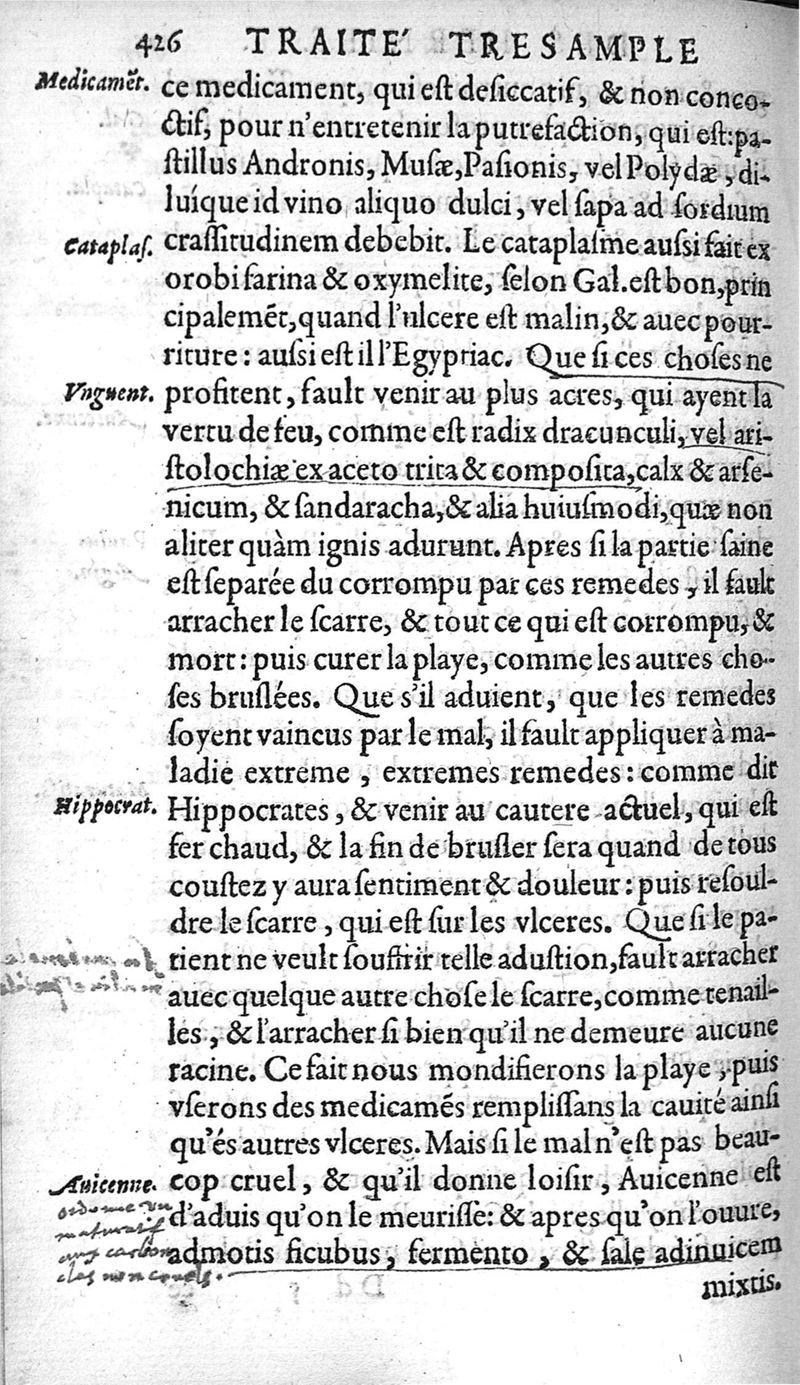 426 TRAITE' TRESAMPLE
Medicamēt. ce medicament, qui est desiccatif, & non conco-
ctif, pour n'entretenir la putrefaction, qui est: pa-
stillus Andronis, Musæ, Pasionis, vel Polydæ, di-
luíque id vino aliquo dulci, vel sapa ad sordium
Cataplas. crassitudinem debebit. Le cataplasme aussi fait ex
orobi farina & oxymelite, selon Gal. est bon, prin
cipalemēt, quand l'ulcere est malin, & auec pour-
riture: aussi est ill'Egyptiac. Que si ces choses ne
Vnguent. profitent, fault venir au plus acres, qui ayent la
vertu de feu, comme est radix dracunculi, vel ari-
stolochiæ ex aceto trita & composita, calx & arse-
nicum, & sandaracha, & alia huiusmodi, quæ non
aliter quàm ignis adurunt. Apres si la partie saine
est separée du corrompu par ces remedes, il fault
arracher le scarre, & tout ce qui est corrompu, &
mort: puis curer la playe, comme les autres cho-
ses bruslées. Que s'il aduient, que les remedes
soyent vaincus par le mal, il fault appliquer à ma-
ladie extreme, extremes remedes: comme dit
Hippocrat. Hippocrates, & venir au cautere actuel, qui est
fer chaud, & la fin de brusler sera quand de tous
coustez y aura sentiment & douleur: puis resoul-
dre le scarre, qui est sur les vlceres. Que si le pa-
tient ne veult souffrir telle adustion, fault arracher
auec quelque autre chose le scarre, comme tenail-
les, & l'arracher si bien qu'il ne demeure aucune
racine. Ce fait nous mondifierons la playe, puis
vserons des medicamēs remplissans la cauité ainsi
qu'és autres vlceres. Mais si le mal n'est pas beau-
Auicenne. cop cruel, & qu'il donne loisir, Auicenne est
d'aduis qu'on le meurisse: & apres qu'on l'ouure,
admotis ficubus, fermento, & sale adinuicem
mixtis.